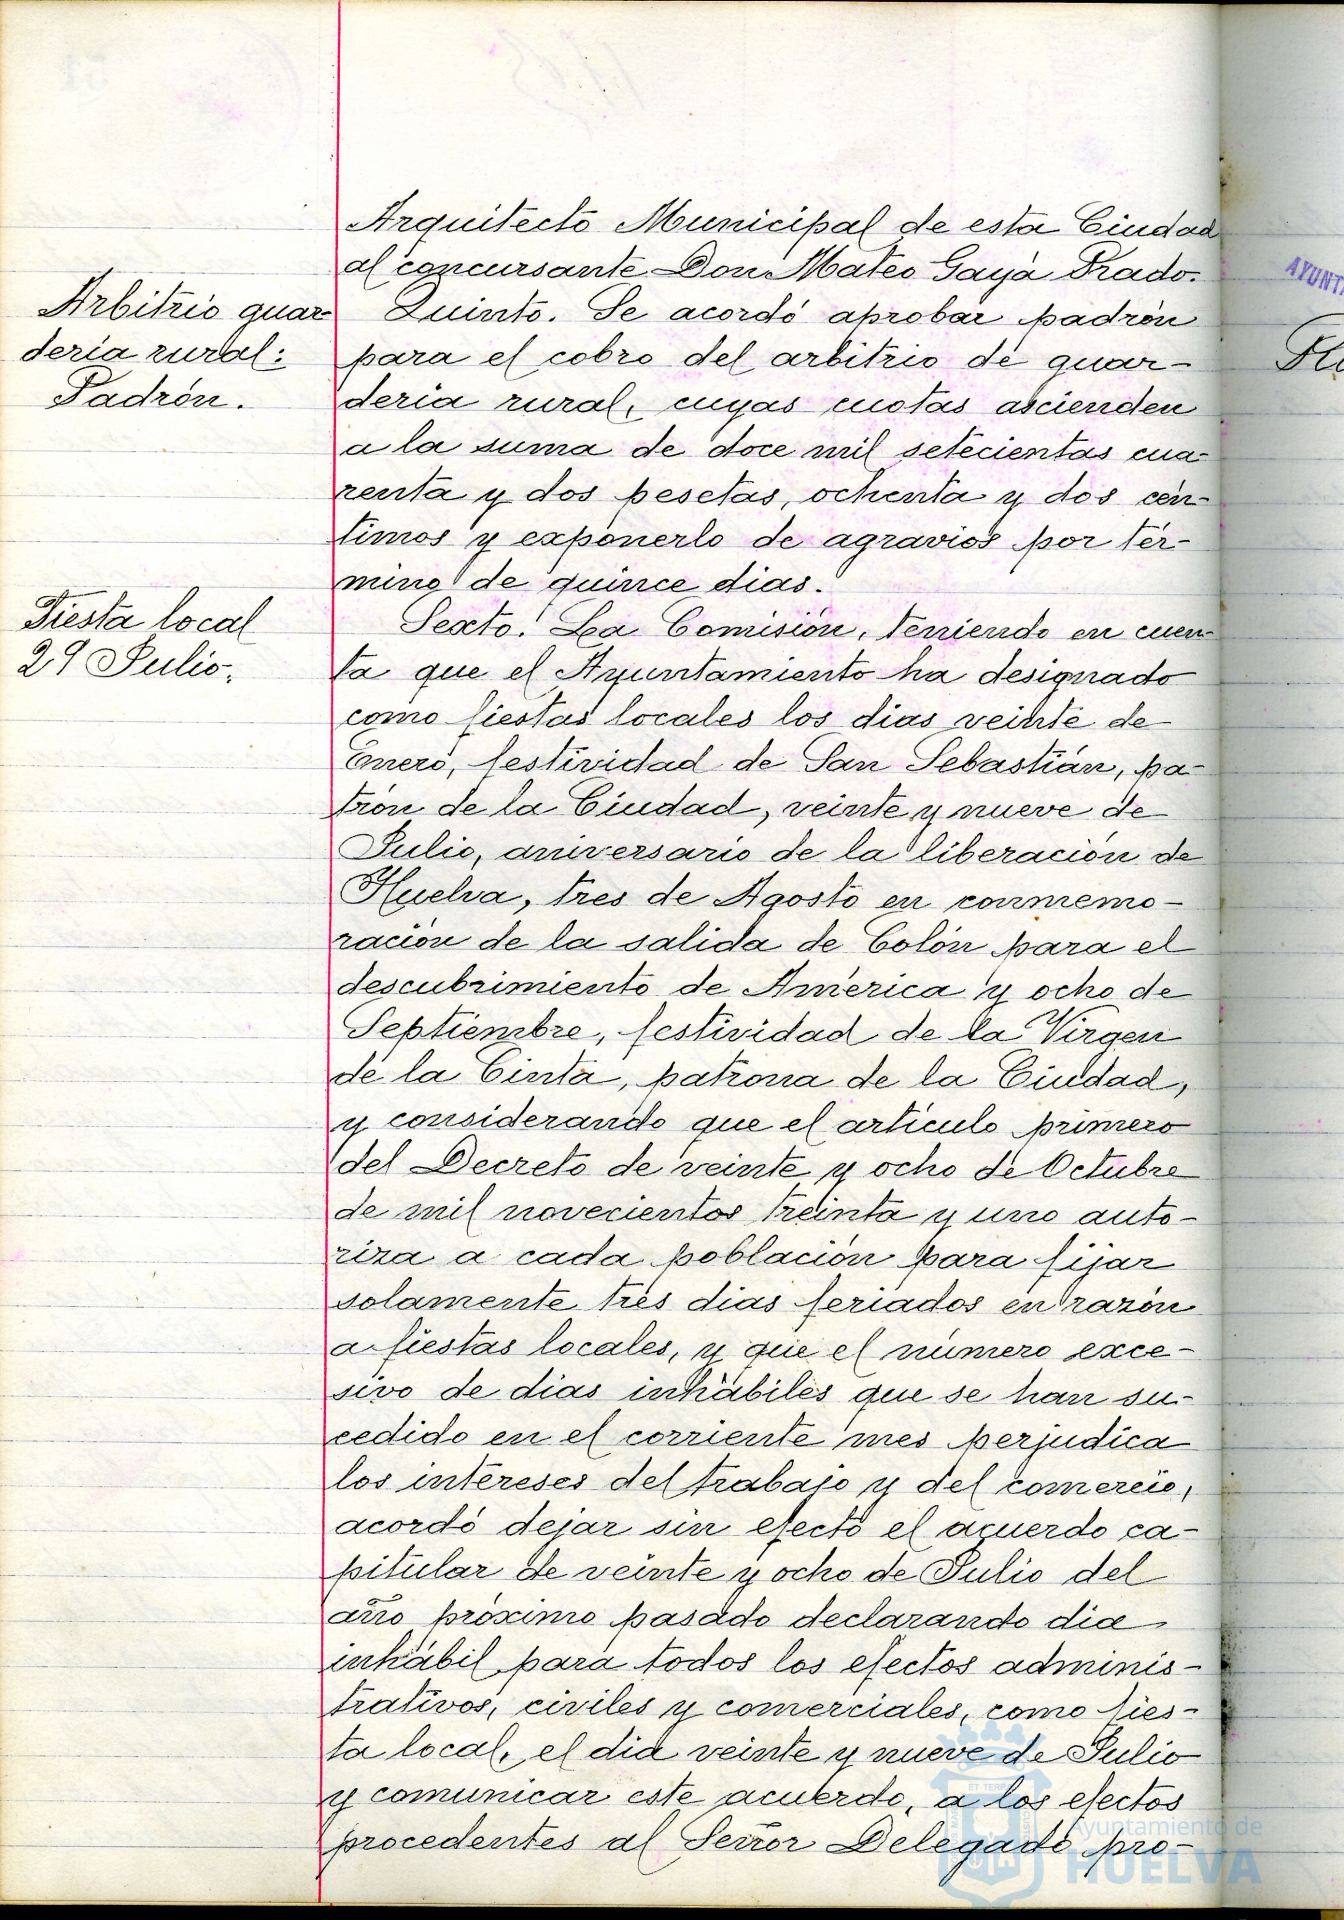 Arquitecto Municipal de esta Ciudad
al concursante Don Mateo Gayá Prado.
Arbitrio guar
deria rural:
Padrón.
Quinto. Se acordó aprobar padrón
para el cobro del arbitrio de guar-
deria rural, cuyas cuotas ascienden
a la suma de doce mil setecientas cua-
renta y dos pesetas, ochenta y dos cén-
timos y exponerlo de agravios por tér-
mino de quince dias.
Fiesta local
29 Julio.
Sexto. La Comisión, teniendo en cuen-
ta que el Ayuntamiento ha designado
como fiestas locales los dias veinte de
Enero, festividad de San Sebastián, pa-
trón de la Ciudad, veinte y nueve de
Julio, aniversario de la liberación de
Huelva, tres de Agosto en conmemo-
ración de la salida de Colón para el
descubrimiento de América y ocho de
Septiembre, festividad de la Virgen
de la Cinta, patrona de la Ciudad,
y considerando que el articulo primero
del Decreto de veinte y ocho de Octubre
de mil novecientos treinta y uno auto-
riza a cada población para fijar
solamente tres dias feriados en razón
a fiestas locales, y que el número exce-
sivo de dias inhábiles que se han su-
cedido en el corriente mes perjudica
los intereses del trabajo y del comercio,
acordó dejar sin efecto el acuerdo ca-
pitular de veinte y ocho de Julio del
año próximo pasado declarando dia
inhábil para todos los efectos adminis-
trativos, civiles y comerciales, como fies-
ta local, el dia veinte y nueve de Julio
y comunicar este acuerdo, a los efectos
procedentes al Señor Delegado pro-
AYUNT
Ayuntamiento de
HUELVA